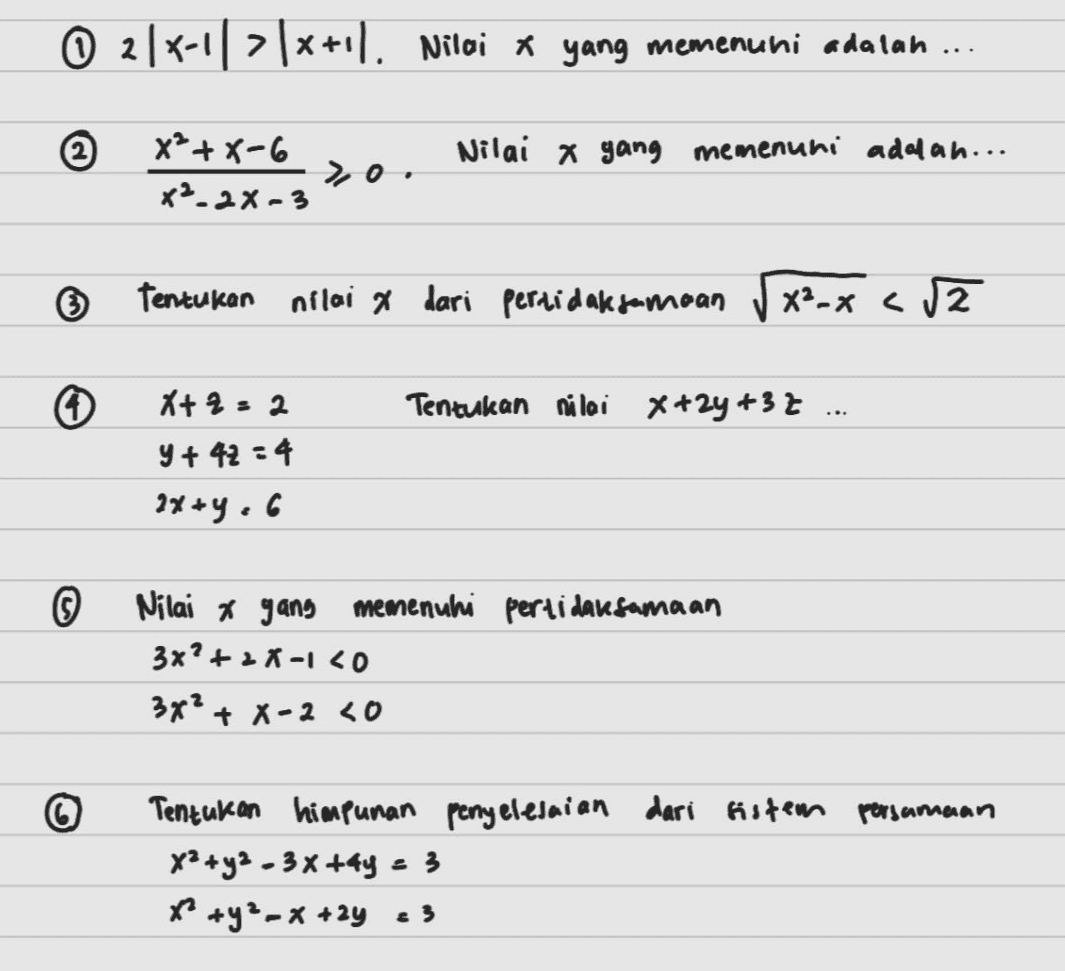 ① 2|x-1| > |x+1|. Nilai x yang memenuhi adalah ...
② (x²+x-6)/(x²-2x-3) ≥ 0. Nilai x yang memenuhi adalah...
③ Tentukan nilai x dari pertidaksamaan √(x²-x) < √2
④ x+z = 2 Tentukan nilai x+2y+3z ...
y+4z = 4
2x+y = 6
⑤ Nilai x yang memenuhi pertidaksamaan
3x²+2x-1 <0
3x²+x-2 <0
⑥ Tentukan himpunan penyelesaian dari sistem persamaan
x²+y²-3x+4y = 3
x²+y²-x+2y = 3